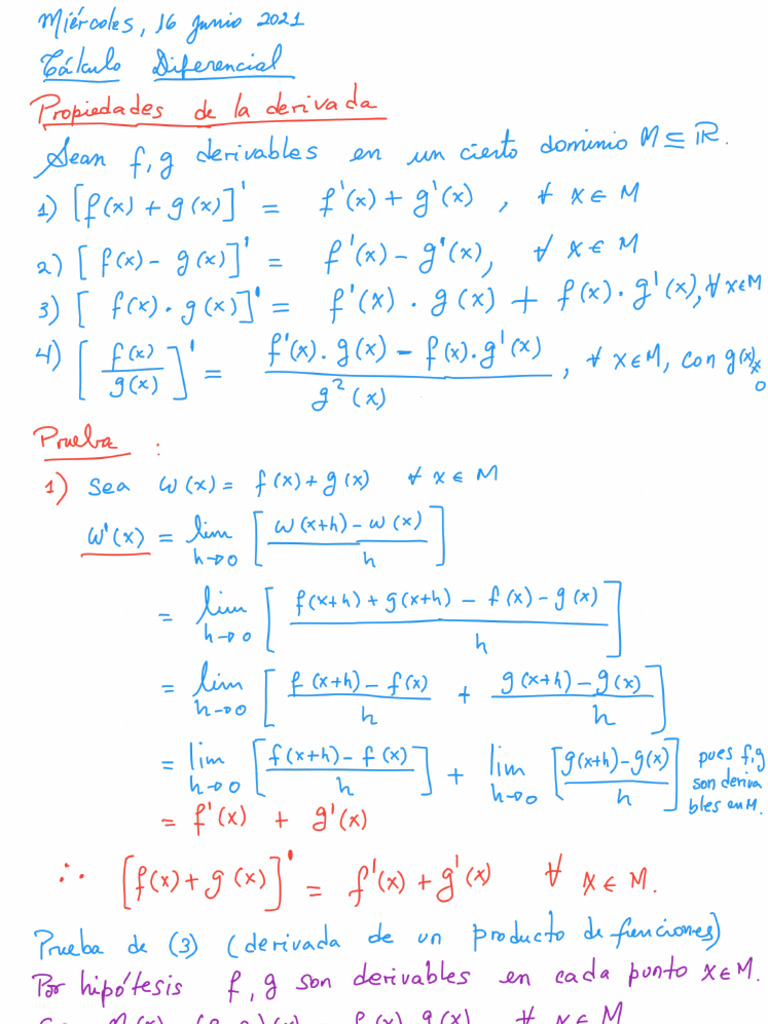 Miércoles, 16 junio 2021
Cálculo Diferencial
Propiedades de la derivada
Sean f, g derivables en un cierto dominio M ⊆ ℝ.
1) [f(x) + g(x)]' = f'(x) + g'(x) , ∀ x ∈ M
2) [f(x) - g(x)]' = f'(x) - g'(x), ∀ x ∈ M
3) [f(x) · g(x)]' = f'(x) · g(x) + f(x) · g'(x), ∀ x ∈ M
4) [f(x) / g(x)]' = (f'(x) · g(x) - f(x) · g'(x)) / g²(x) , ∀ x ∈ M, con g(x) ≠ 0
Prueba :
1) Sea ω(x) = f(x) + g(x) ∀ x ∈ M
ω'(x) = lim h→0 [(ω(x+h) - ω(x)) / h]
= lim h→0 [(f(x+h) + g(x+h) - f(x) - g(x)) / h]
= lim h→0 [(f(x+h) - f(x)) / h + (g(x+h) - g(x)) / h]
= lim h→0 [(f(x+h) - f(x)) / h] + lim h→0 [(g(x+h) - g(x)) / h]
pues f, g
son deriva
bles en M.
= f'(x) + g'(x)
∴ [f(x) + g(x)]' = f'(x) + g'(x) ∀ x ∈ M.
Prueba de (3) (derivada de un producto de funciones)
Por hipótesis f, g son derivables en cada punto x ∈ M.